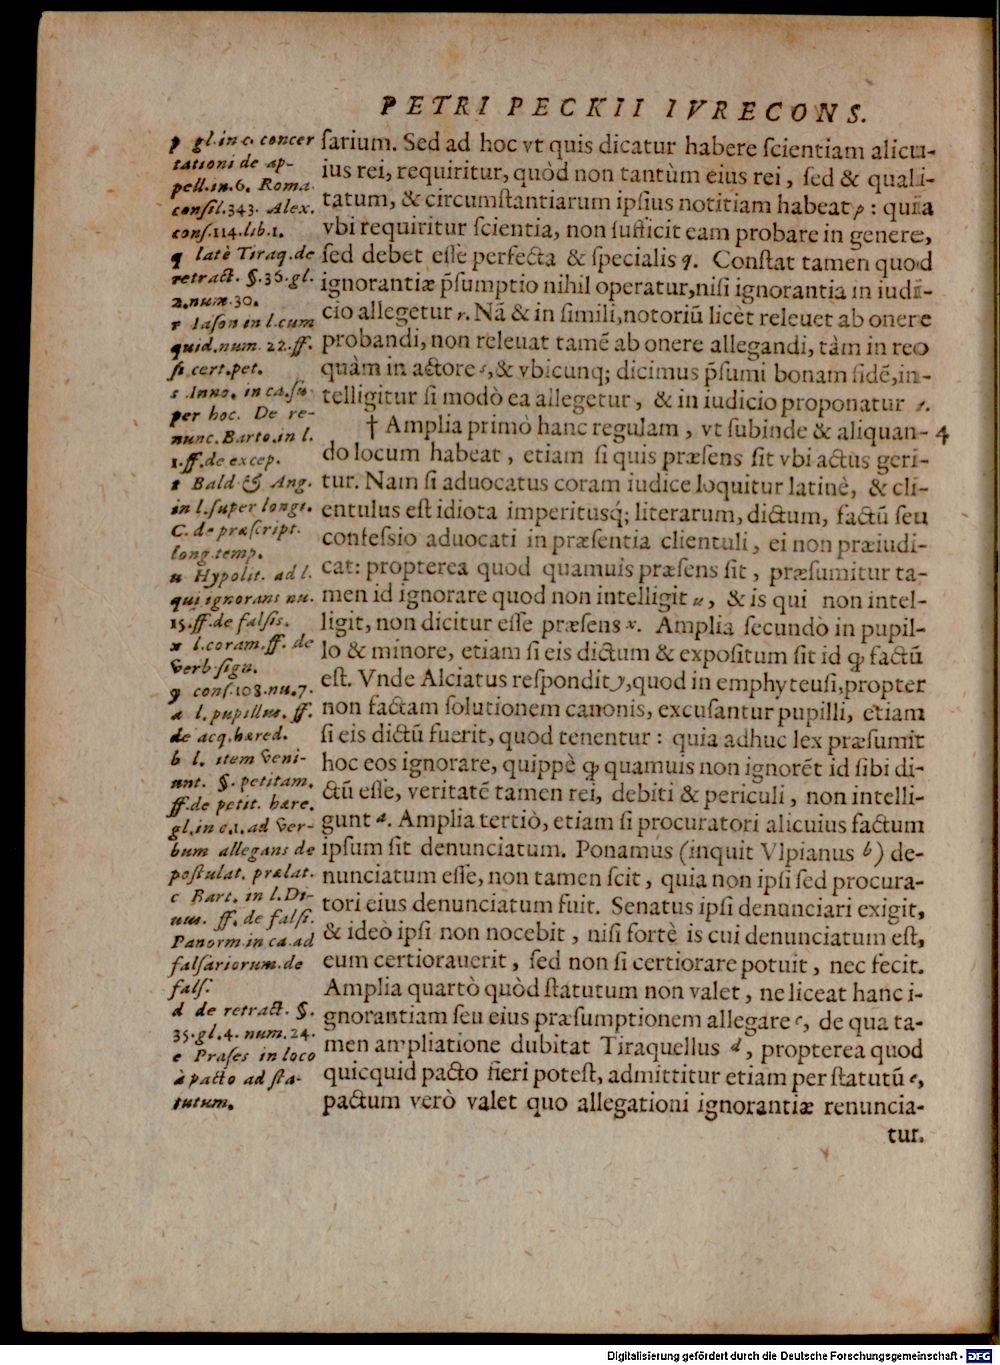 PETRI PECKII IVRECONS.
p gl. in c. concer
tationi de ap-
pell. in. 6. Roma.
consil. 343. Alex.
cons. 114. lib. 1.
q latè Tiraq. de
retract. §. 36. gl.
2. num. 30.
r Iason in l. cum
quid. num. 22. ff.
si cert. pet.
s Inno. in ca. sū
per hoc. De re-
nunc. Barto. in l.
1. ff. de excep.
t Bald & Ang.
in l. super longi.
C. de præscript.
long. temp.
u Hypolit. ad l.
qui ignorans nu.
15. ff. de falsis.
x l. coram. ff. de
verb. sign.
y cons. 108. nu. 7.
a l. pupillus. ff.
de acq. hæred.
b l. item veni-
unt. §. petitam.
ff. de petit. hære.
gl. in c. 1. ad ver-
bum allegans de
postulat. prælat.
c Bart. in l. Di-
uus. ff. de falsi.
Panorm. in ca. ad
falsariorum. de
fals.
d de retract. §.
35. gl. 4. num. 24.
e Præses in loco
à pacto ad sta-
tutum.
sarium. Sed ad hoc vt quis dicatur habere scientiam alicu-
ius rei, requiritur, quòd non tantùm eius rei, sed & quali-
tatum, & circumstantiarum ipsius notitiam habeat p: quia
vbi requiritur scientia, non sufficit eam probare in genere,
sed debet esse perfecta & specialis q. Constat tamen quod
ignorantiæ p̄sumptio nihil operatur, nisi ignorantia in iudi-
cio allegetur r. Nā & in simili, notoriū licèt releuet ab onere
probandi, non releuat tamē ab onere allegandi, tàm in reo
quàm in actore s, & vbicunq; dicimus p̄sumi bonam fidē, in-
telligitur si modò ea allegetur, & in iudicio proponatur t.
† Amplia primò hanc regulam, vt subinde & aliquan- 4
do locum habeat, etiam si quis præsens sit vbi actus geri-
tur. Nam si aduocatus coram iudice loquitur latinè, & cli-
entulus est idiota imperitusq́; literarum, dictum, factū seu
confessio aduocati in præsentia clientuli, ei non præiudi-
cat: propterea quod quamuis præsens sit, præsumitur ta-
men id ignorare quod non intelligit u, & is qui non intel-
ligit, non dicitur esse præsens x. Amplia secundò in pupil-
lo & minore, etiam si eis dictum & expositum sit id ꝙ factū
est. Vnde Alciatus respondit y, quod in emphyteusi, propter
non factam solutionem canonis, excusantur pupilli, etiam
si eis dictū fuerit, quod tenentur: quia adhuc lex præsumit
hoc eos ignorare, quippè ꝙ quamuis non ignorēt id sibi di-
ctū esse, veritatē tamen rei, debiti & periculi, non intelli-
gunt a. Amplia tertiò, etiam si procuratori alicuius factum
ipsum sit denunciatum. Ponamus (inquit Vlpianus b) de-
nunciatum esse, non tamen scit, quia non ipsi sed procura-
tori eius denunciatum fuit. Senatus ipsi denunciari exigit,
& ideò ipsi non nocebit, nisi fortè is cui denunciatum est,
eum certiorauerit, sed non si certiorare potuit, nec fecit.
Amplia quartò quòd statutum non valet, ne liceat hanc i-
gnorantiam seu eius præsumptionem allegare c, de qua ta-
men ampliatione dubitat Tiraquellus d, propterea quod
quicquid pacto fieri potest, admittitur etiam per statutū e,
pactum verò valet quo allegationi ignorantiæ renuncia-
tur.
Digitalisierung gefördert durch die Deutsche Forschungsgemeinschaft - DFG